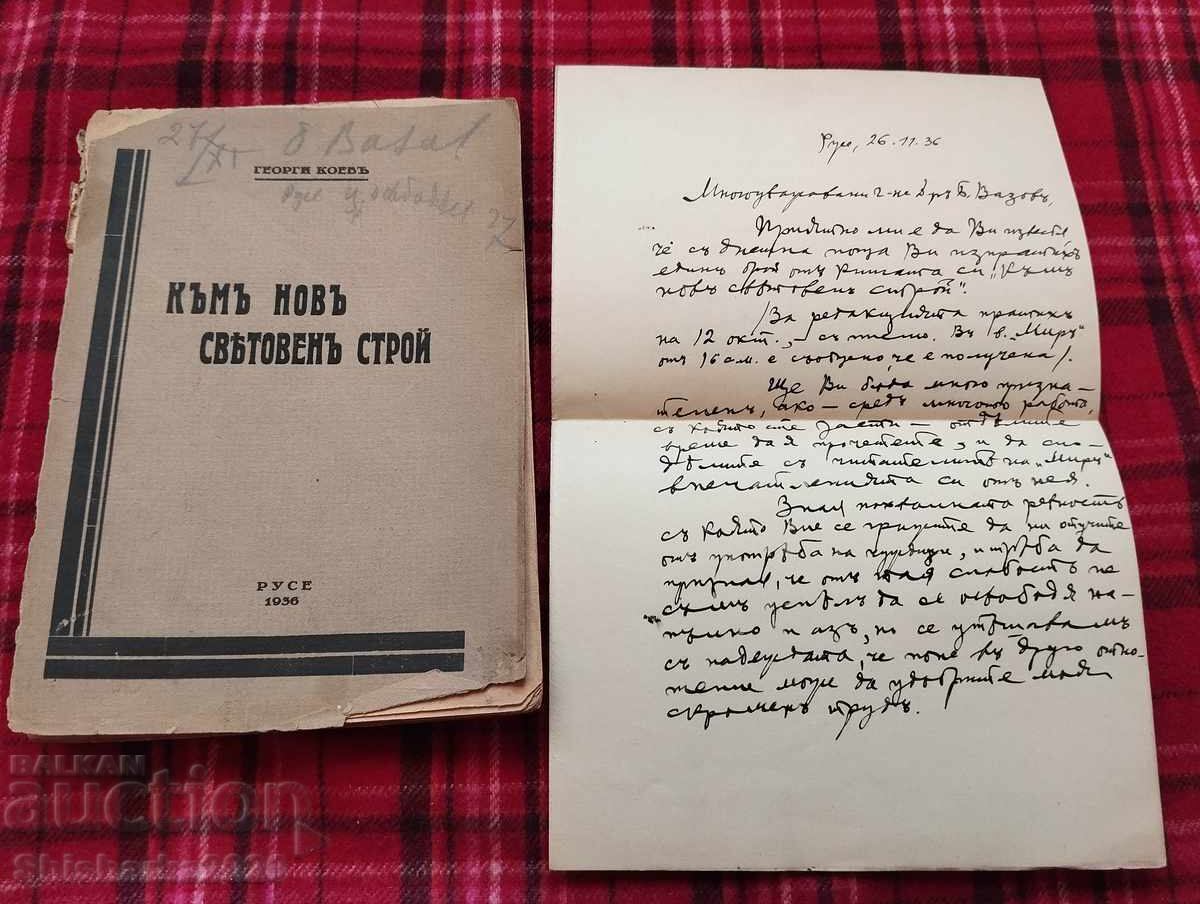 27/XI
ГЕОРГИ КОЕВЪ
КЪМЪ НОВЪ
СВѢТОВЕНЪ СТРОЙ
РУСЕ
1936
Русе, 26.11.36
Многоуважаеми г-не Д-ръ Б. Вазовъ,
Приятно ми е да Ви известя
че съ днешна поща Ви изпратихъ
единъ брой отъ книгата си „Къмъ
новъ свѣтовенъ строй“.
/За редакцията пратихъ
на 12 окт., – съ писмо. Въ в. „Миръ“
отъ 16 с.м. е съобщено, че е получена/.
Ще Ви бѫда много призна-
теленъ, ако – средъ многото работа,
съ която сте заети – отдѣлите
време да я прочетете, и да спо-
дѣлите съ читателитѣ на „Миръ“
впечатленията си отъ нея.
Зная похвалната ревность
съ която Вие се грижите да ни отучите
отъ употрѣба на чуждици, и трѣба да
призная, че отъ тая слабость не
съмъ успѣлъ да се освободя на-
пълно и азъ, но се утѣшавамъ
съ надеждата, че поне въ друго отно-
шение може да удобрите моя
скроменъ трудъ.
BALKAN
auction